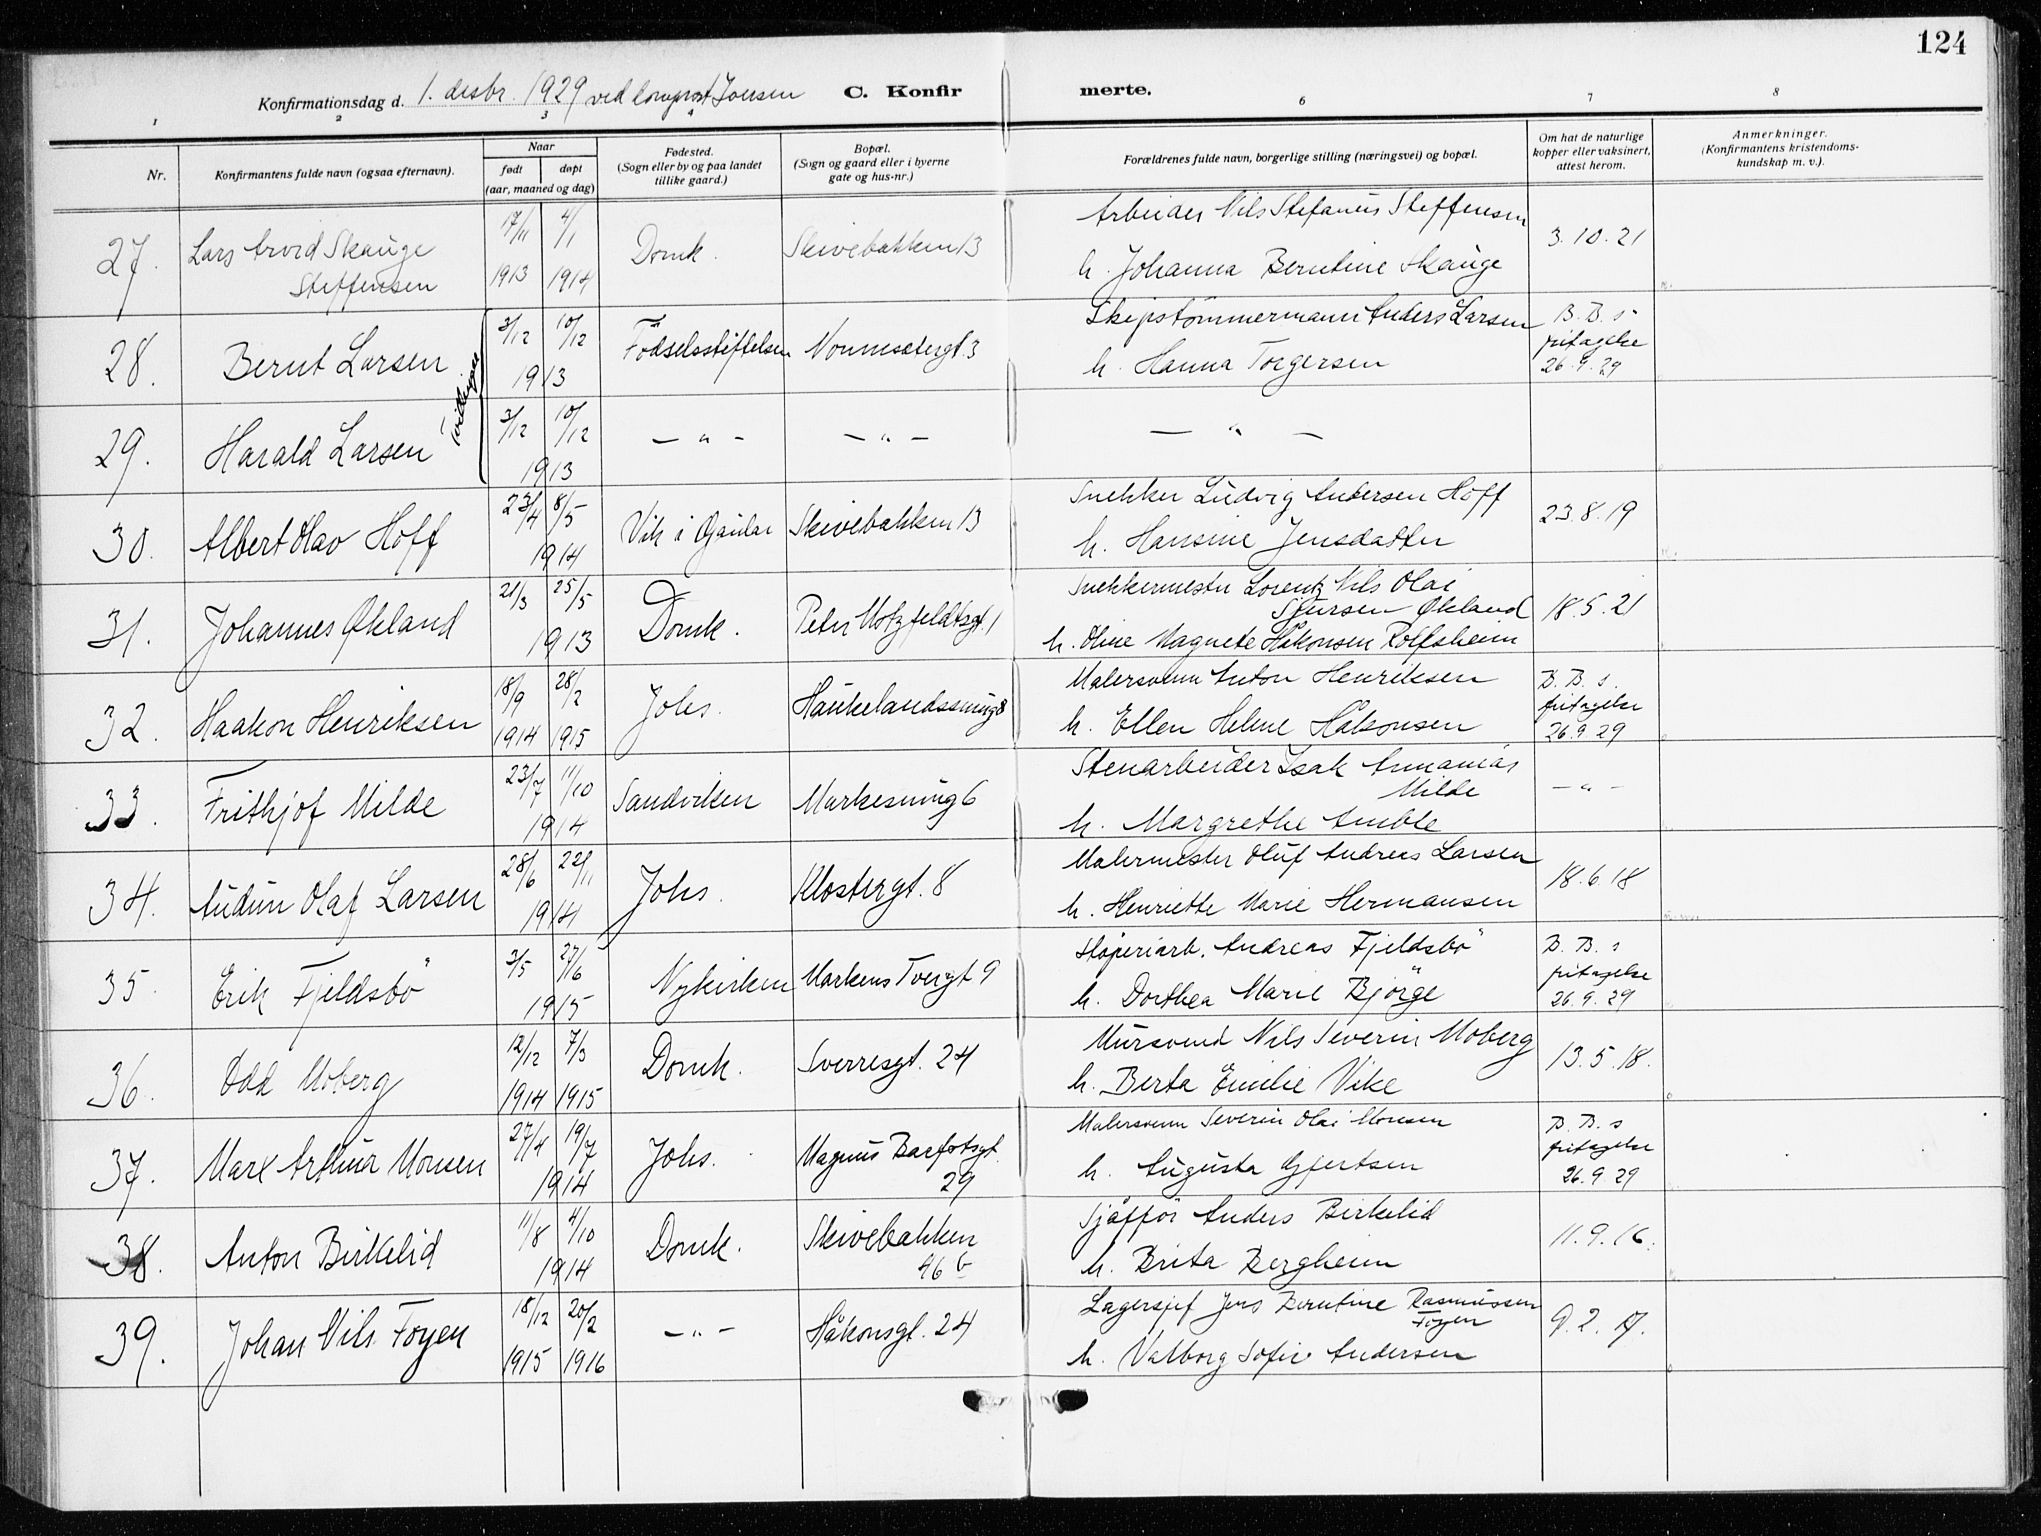 124
Konfirmationsdag d. 1. desbr. 1929 ved domprost Joensen C. Konfirmerte.
1 2 3 4 6 7 8
Nr.
Konfirmantens fulde navn (ogsaa efternavn).
Naar
født døpt
(aar, maaned og dag)
Fødested.
(Sogn eller by og paa landet
tillike gaard.)
Bopæl.
(Sogn og gaard eller i byerne
gate og hus-nr.)
Forældrenes fulde navn, borgerlige stilling (næringsvei) og bopæl.
Om hat de naturlige
kopper eller vaksinert,
attest herom.
Anmerkninger.
(Konfirmantens kristendoms-
kundskap m. v.).
27. Lars Arvid Skauge
Steffensen
17/11 4/1
1913 1914
Domk.
Skivebakken 13
Arbeider Nils Stefanus Steffensen
h. Johanna Berntine Skauge
3.10.21
28. Bernt Larsen
3/12 10/12
1913
Födselsstiftelsen
Nonnesetergt. 3
Skipstömmermann Anders Larsen
h. Hanna Torgersen
B. B. s
fritagelse
26.9.29
tvillinger
29. Harald Larsen
3/12 10/12
1913
— " —
— " —
— " —
30. Albert Olav Hoff
23/4 8/5
1914
Vik i Gaular
Skivebakken 13
Snekker Ludvig Andersen Hoff
h. Hansine Jensdatter
23.8.19
31. Johannes Økland
21/3 25/5
1913
Domk.
Peter Motzfeldtsgt. 1
Snekkermester Lorentz Nils Olai
Sjursen Økland
h. Oline Magnete Håkonsen Rolfsheim
18.5.21
32. Haakon Henriksen
18/9 28/2
1914 1915
Johs.
Haukelandssmug 8
Malersvenn Anton Henriksen
h. Ellen Helene Håkonsen
B. B. s.
fritagelse
26.9.29
33. Frithjof Milde
23/7 11/10
1914
Sandviken
Markesmug 6
Stenarbeider Isak Annanias
Milde
h. Margrethe Amble
— " —
34. Audun Olaf Larsen
28/6 22/11
1914
Johs.
Klostergt. 8
Malermester Oluf Andreas Larsen
h. Henriette Marie Hermansen
18.6.18
35. Erik Fjeldsbö
3/5 27/6
1915
Nykirken
Markens Tvergt 9
Støperiarb. Andreas Fjeldsbö
h. Dorthea Marie Björge
B. B. s
fritagelse
26.9.29
36. Odd Moberg
12/12 7/3
1914 1915
Domk.
Sverresgt. 24
Mursvend Nils Severin Moberg
h. Berta Emilie Vike
13.5.18.
37. Marx Arthur Monsen
27/4 19/7
1914
Johs.
Magnus Barfotsgt.
29
Malersvenn Severin Olai Monsen
h. Augusta Gjertsen
B. B. s
fritagelse
26.9.29
38. Anton Birkelid
11/8 4/10
1914
Domk.
Skivebakken
46 b
Sjåffør Anders Birkelid
h. Brita Bergheim
11.9.16.
39. Johan Nils Foyen
18/12 20/2
1915 1916
— " —
Håkonsgt. 24
Lagersjef Jens Berntine Rasmussen
Foyen
h. Valborg Sofie Andersen
9.2.17.